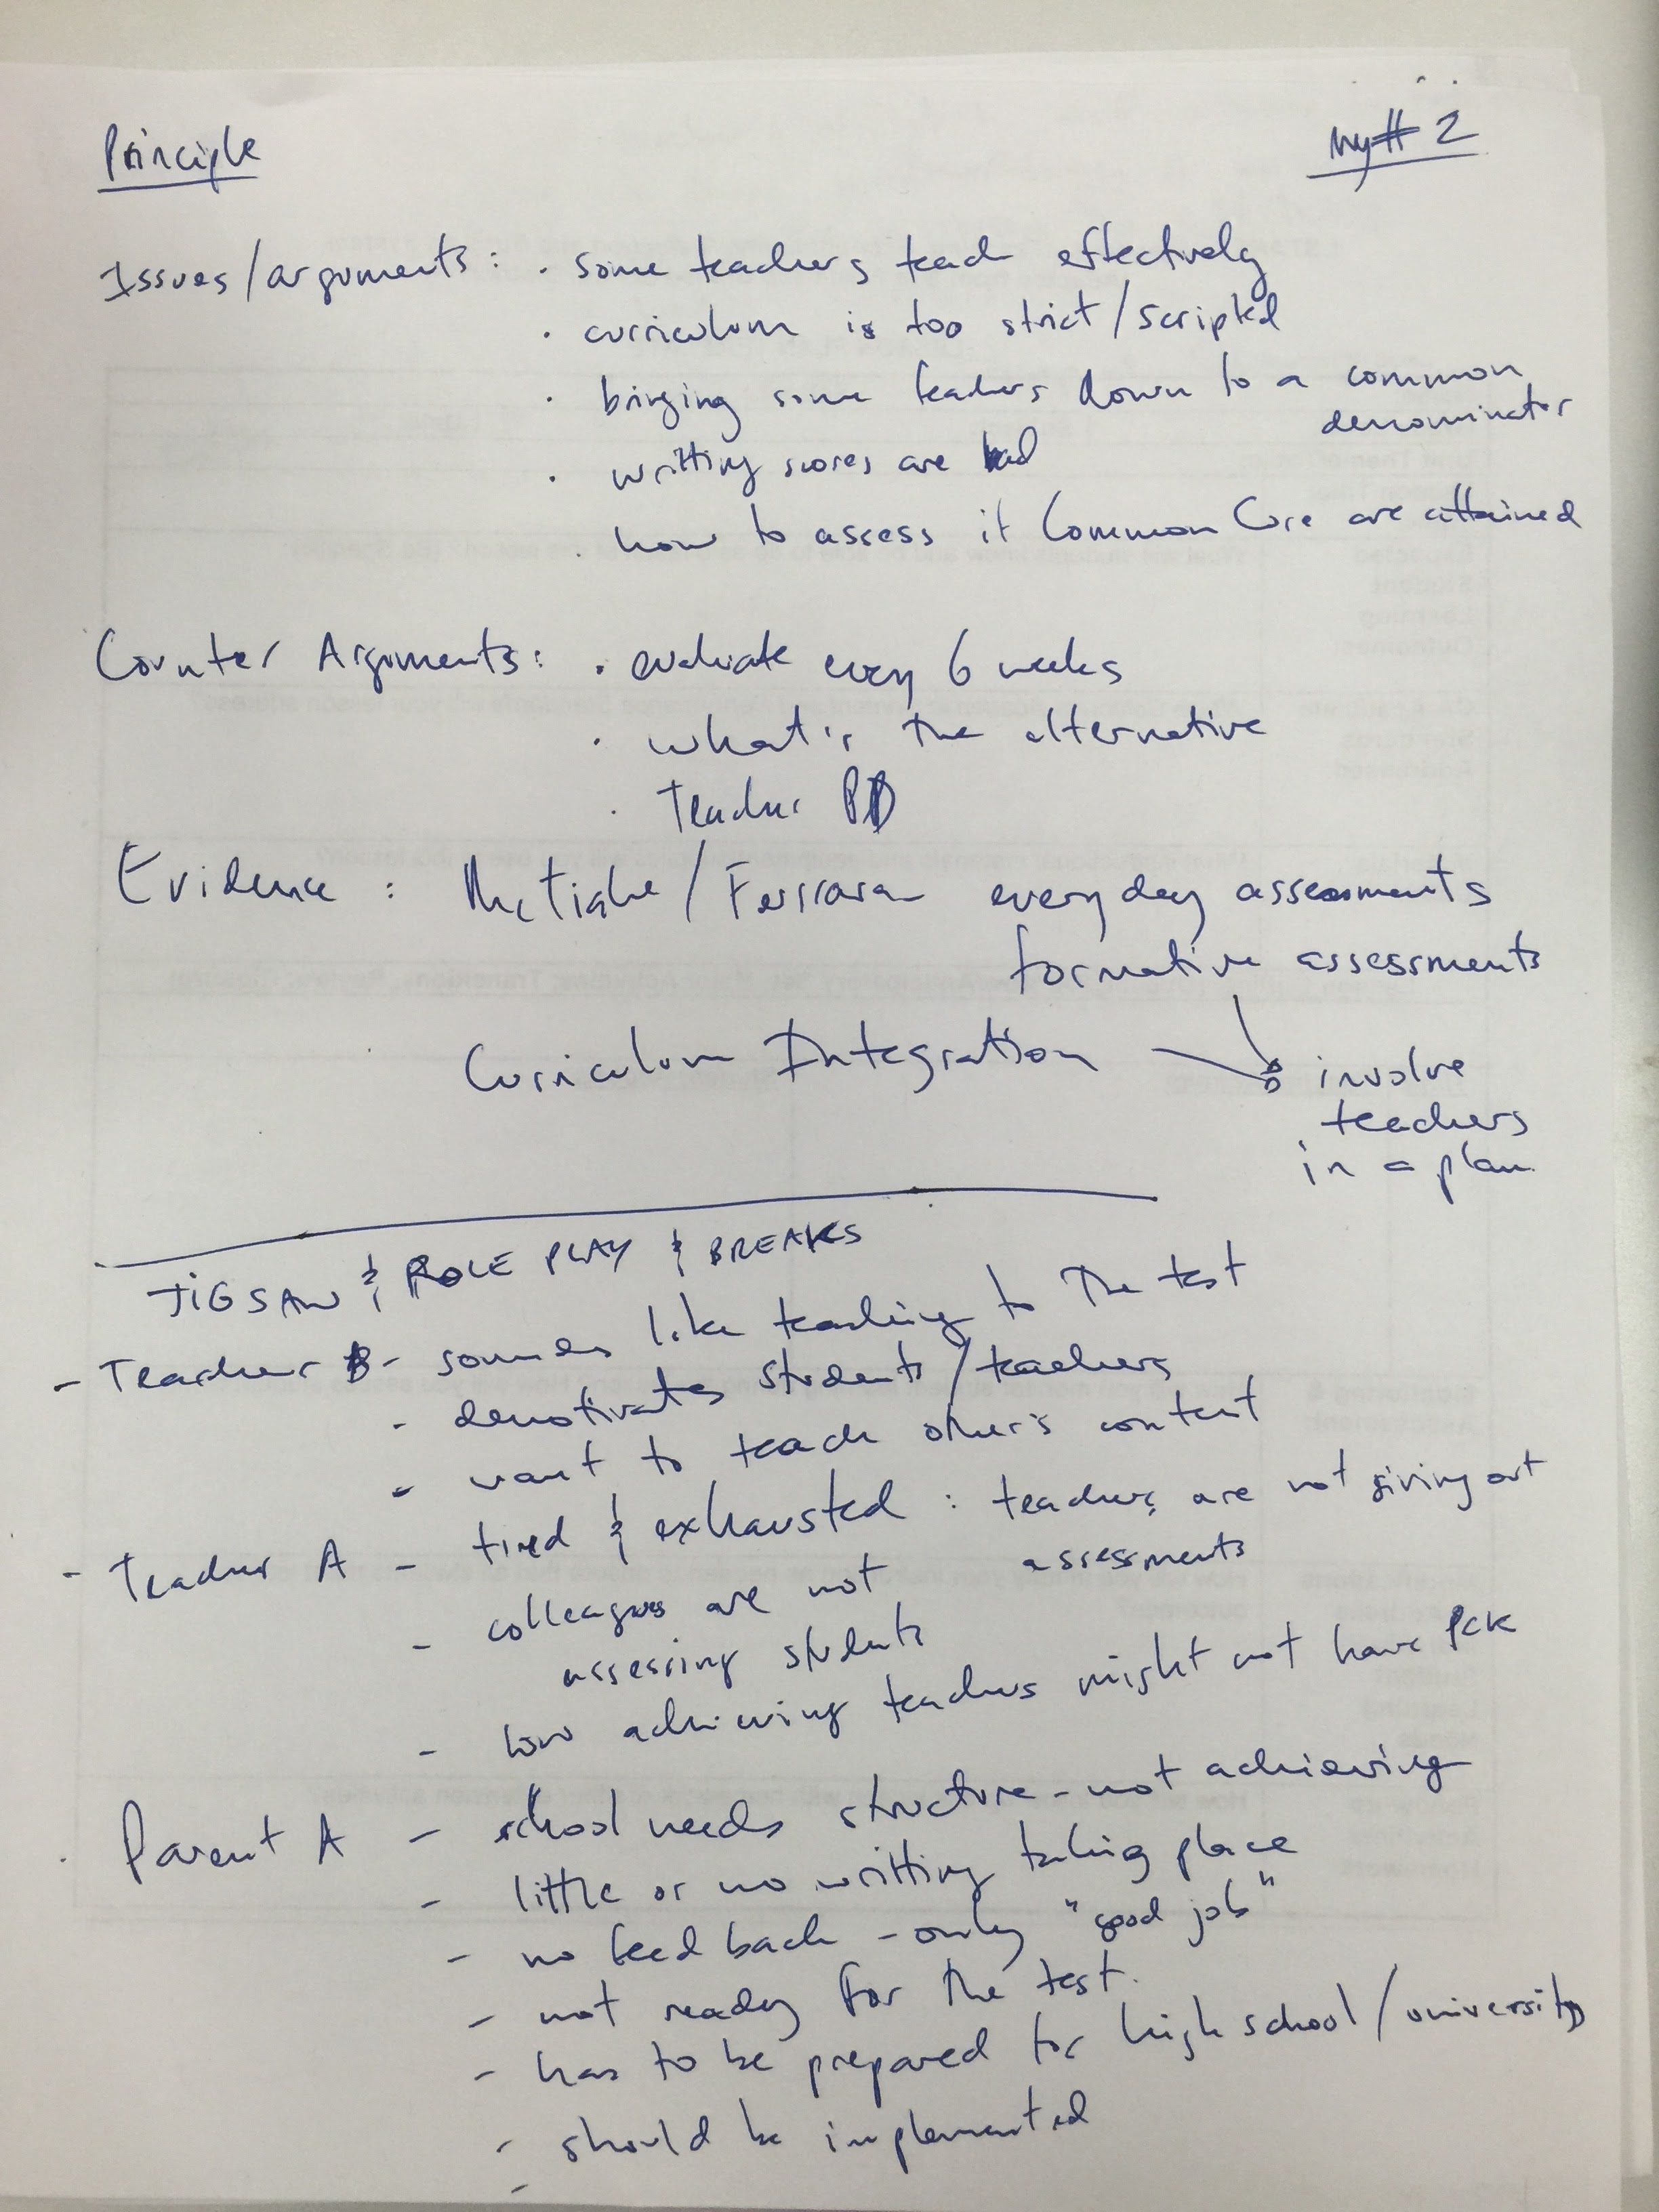 Principle
Myth 2
Issues/arguments: · some teachers teach effectively
· curriculum is too strict/scripted
· bringing some teachers down to a common
denominator
· writting scores are bad
· how to assess if Common Core are attained
Counter Arguments: · evaluate every 6 weeks
· what's the alternative
· Teacher PD
Evidence: McTighe/Ferrara everyday assessments
formative assessments
Curriculum Integration → involve
teachers
in a plan
JIGSAW & ROLE PLAY & BREAKS
- Teacher B - sounds like teaching to the test
- demotivates students/teachers
- want to teach other's content
- Teacher A - tired & exhausted: teachers are not giving out
assessments
- colleagues are not
assessing students
- low achieving teachers might not have PCK
· Parent A - school needs structure - not achieving
- little or no writting taking place
- no feed back - only "good job"
- not ready for the test.
- has to be prepared for high school/university
- should be implemented
-